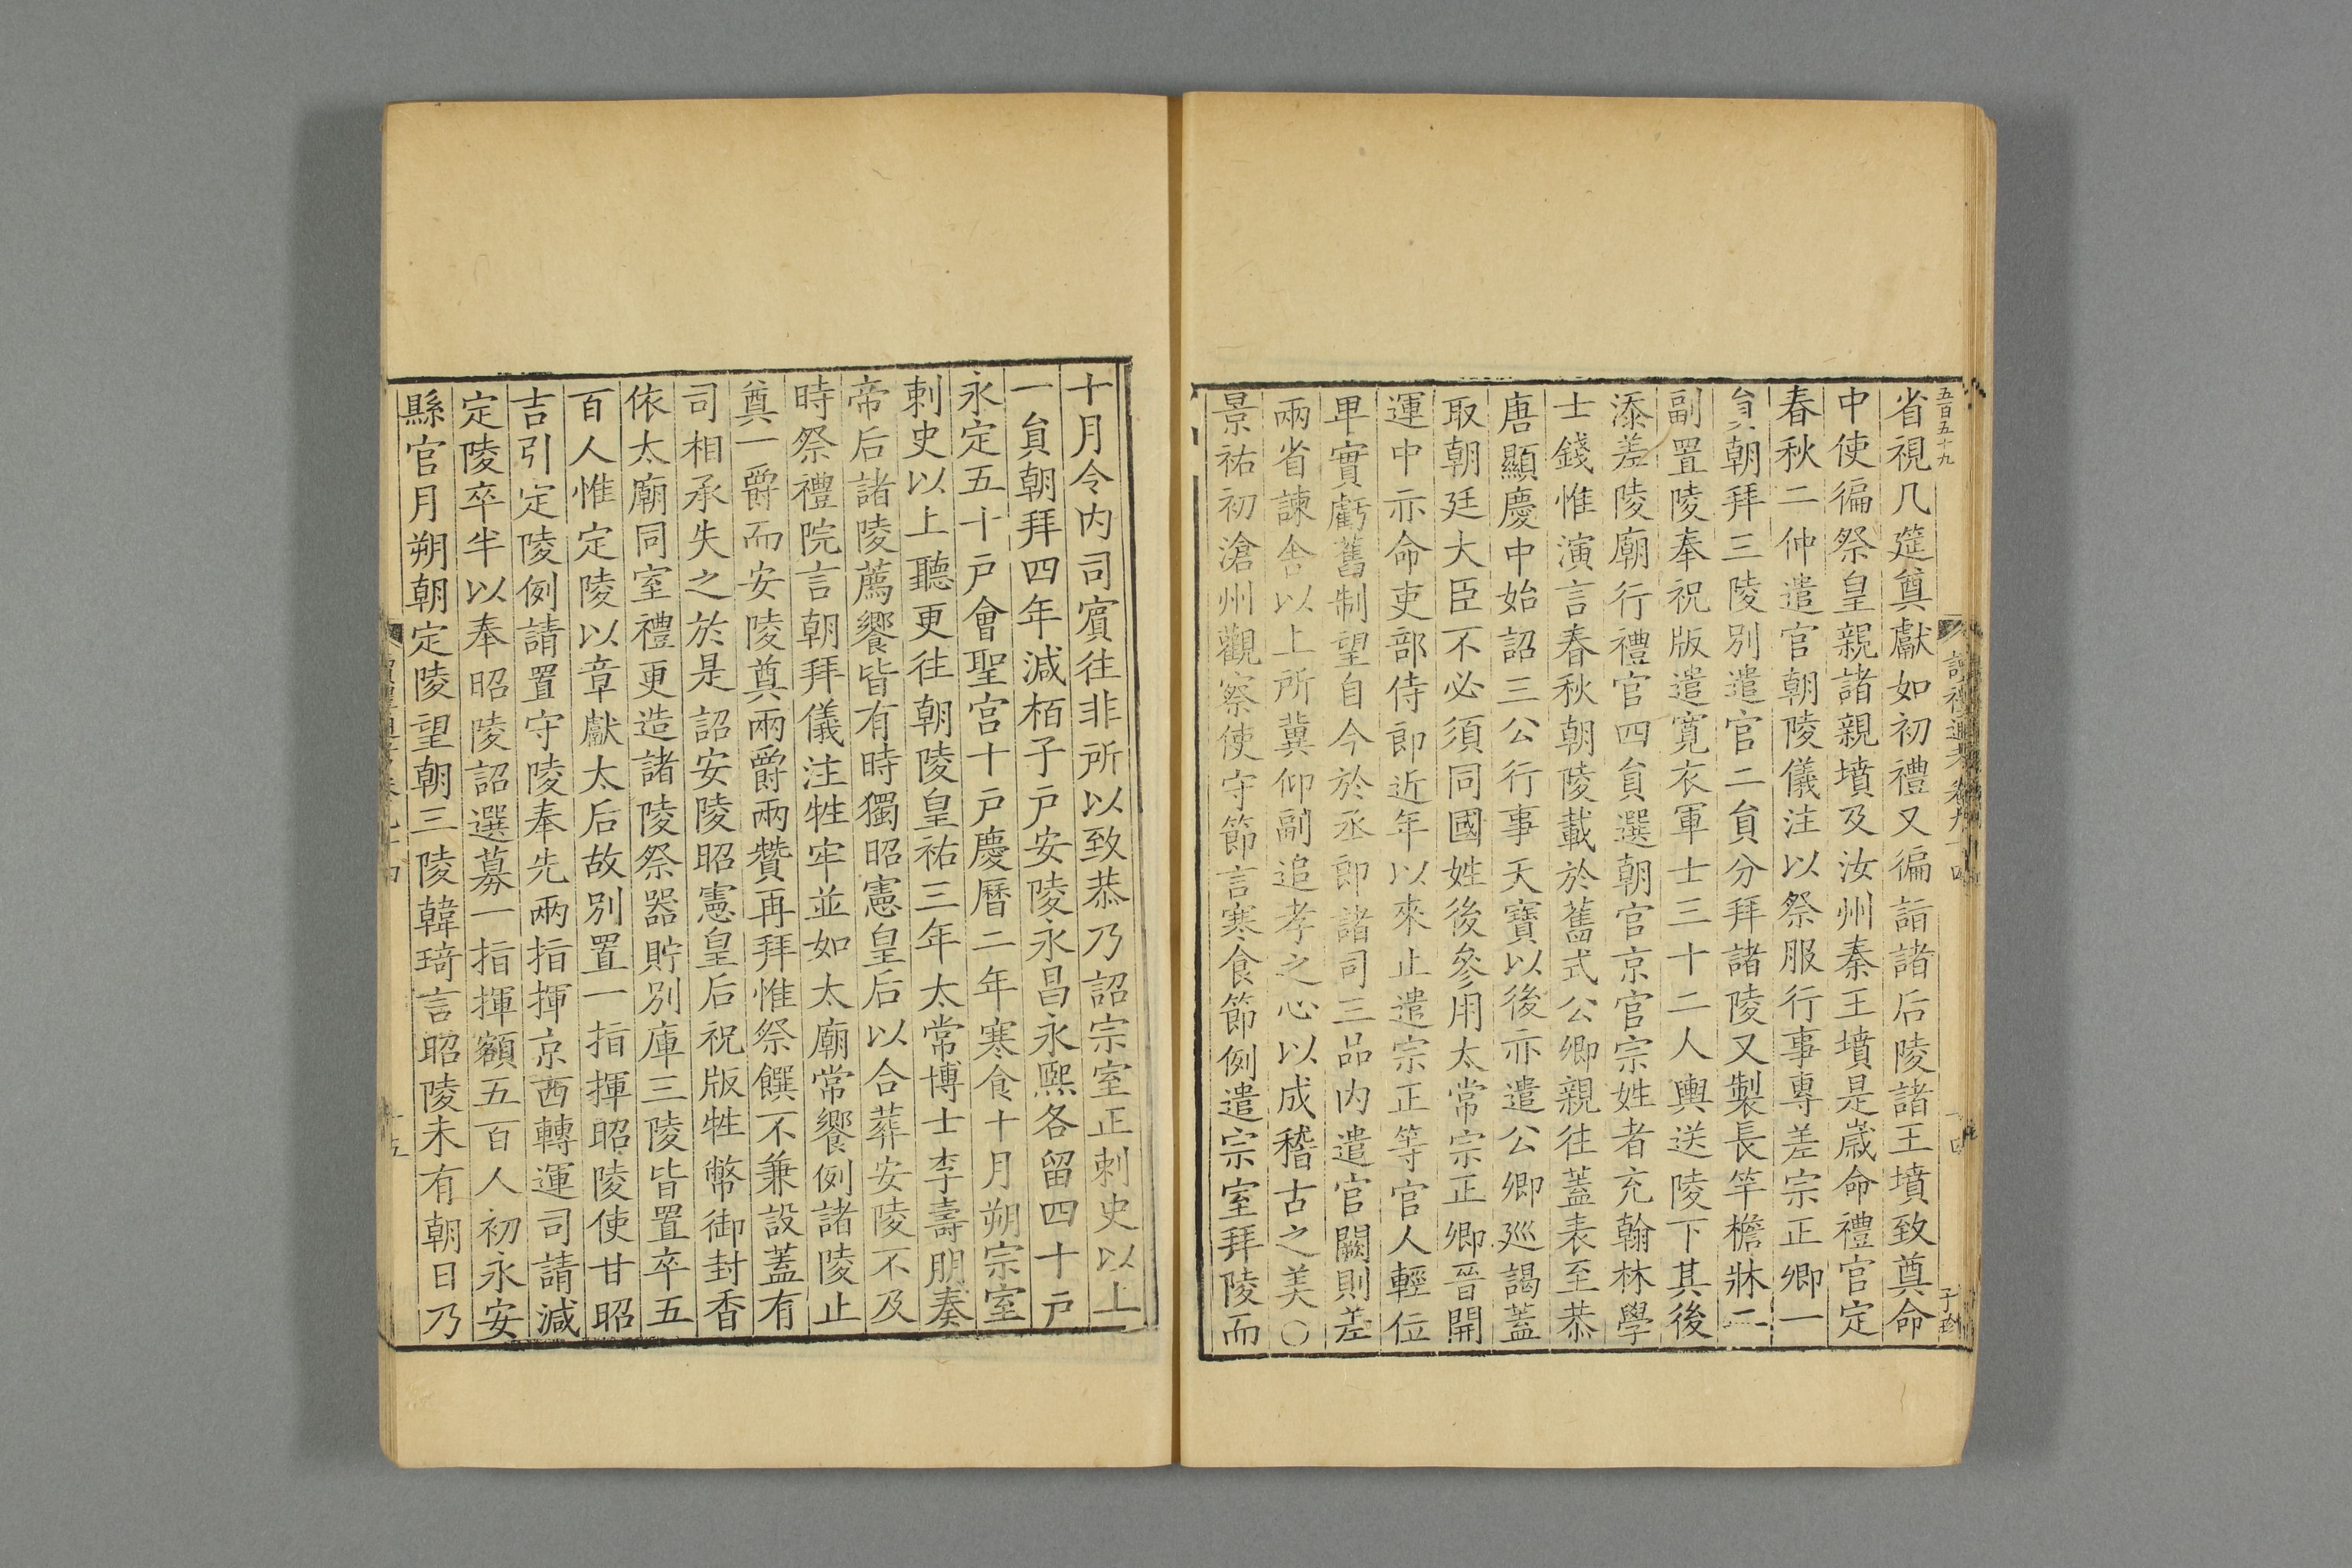 五百五十九
省視几筵奠獻如初禮又徧詣諸后陵諸王墳致奠命
中使徧祭皇親諸親墳及汝州秦王墳是歲命禮官定
春秋二仲遣官朝陵儀注以祭服行事專差宗正卿一
員朝拜三陵別遣官二員分拜諸陵又製長竿檐牀二
副置陵奉祝版遣寬衣軍士三十二人輿送陵下其後
添差陵廟行禮官四員選朝官京官宗姓者充翰林學
士錢惟演言春秋朝陵載於舊式公卿親往蓋表至恭
唐顯慶中始詔三公行事天寶以後亦遣公卿巡謁蓋
取朝廷大臣不必須同國姓後參用太常宗正卿晉開
運中亦命吏部侍郎近年以來止遣宗正等官人輕位
卑實虧舊制望自今於丞郎諸司三品内遣官闕則差
兩省諫舍以上所冀仰副追孝之心以成稽古之美〇
景祐初滄州觀察使守節言寒食節例遣宗室拜陵而
十月令内司賓往非所以致恭乃詔宗室正刺史以上
一員朝拜四年減栢子户安陵永昌永熙各留四十户
永定五十户會聖宮十户慶曆二年寒食十月朔宗室
刺史以上聽更往朝陵皇祐三年太常博士李壽朋奏
帝后諸陵薦饗皆有時獨昭憲皇后以合葬安陵不及
時祭禮院言朝拜儀注牲牢並如太廟常饗例諸陵止
奠一爵而安陵奠兩爵兩贊再拜惟祭饌不兼設蓋有
司相承失之於是詔安陵昭憲皇后祝版牲幣御封香
依太廟同室禮更造諸陵祭器貯別庫三陵皆置卒五
百人惟定陵以章獻太后故別置一指揮昭陵使甘昭
吉引定陵例請置守陵奉先兩指揮京西轉運司請減
定陵卒半以奉昭陵詔選募一指揮額五百人初永安
縣官月朔朝定陵望朝三陵韓琦言昭陵未有朝日乃